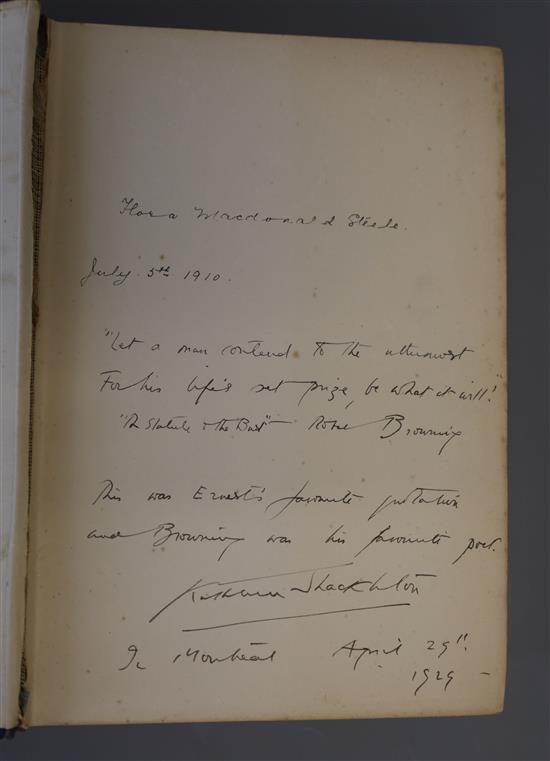 Flora Macdonald Steele.
July 5th 1910.
"Let a man contend to the uttermost
For his life's set prize, be what it will!"
"The Statute & the Bust" — Robt Browning
This was Ernest's favourite quotation
and Browning was his favourite poet.
Kathleen Shackleton
In Montreal April 29th
1929 –